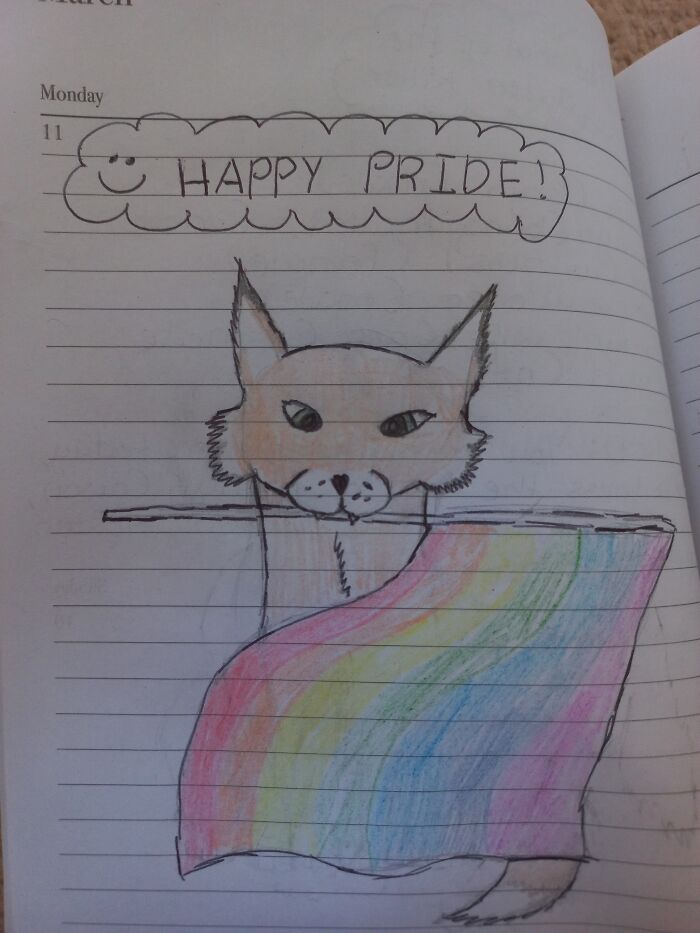 March
Monday
11
HAPPY PRIDE!